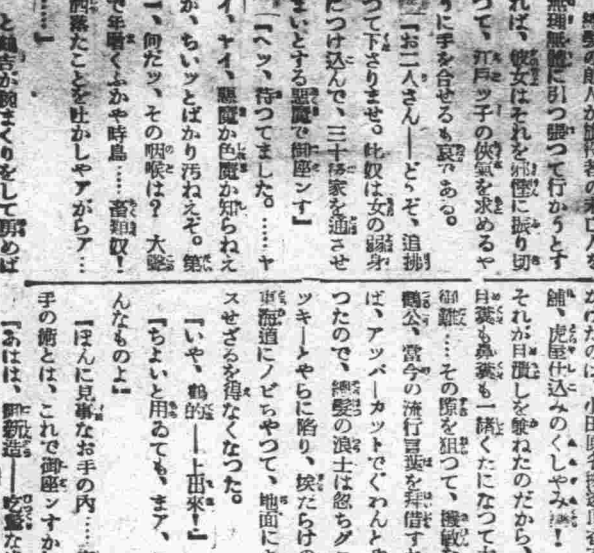 總髮の浪人が旅役者の未亡人を
無理無體に引つ張つて行かうとす
れば、彼女はそれを邪慳に振り切
つて、江戸ツ子の俠氣を求めるや
うに手を合せるも哀である。
『お二人さん――どうぞ、追拂
つて下さりませ。此奴は女の弱身
につけ込んで、三十振家を通させ
まいとする惡魔で御座ンす』
『ヘツ、待つてました。……ヤ
イ、ヤイ、惡魔か色魔か知らねえ
が、ちいツとばかり汚ねえぞ。第
一、何だツ、その咽喉は？　大聲
で年増くふかや時鳥……畜類奴！
洒落たことを吐かしやアがらア…
……』
と鶴吉が腕まくりをして勇めば
かけたのは、小田原名物透頂香
舖、虎屋仕込みのくしやみ藥！
それが目潰しを兼ねたのだから、
目糞も鼻糞も一緒くたになつて
御難……その隙を狙つて、機敏な
鶴公、當今の流行言葉を拜借す
ば、アツパーカツトでぐわんと
つたので、總髮の浪士は忽ちグ
ツキーとやらに陷り、埃だらけの
東海道にノビちやつて、地面に
スせざるを得なくなつた。
『いや、鶴的――上出來！』
『ちよいと用ゐても、まア、
んなものよ』
『ほんに見事なお手の内……
手の術とは、これで御座ンすか
『あはは、御新造――乾